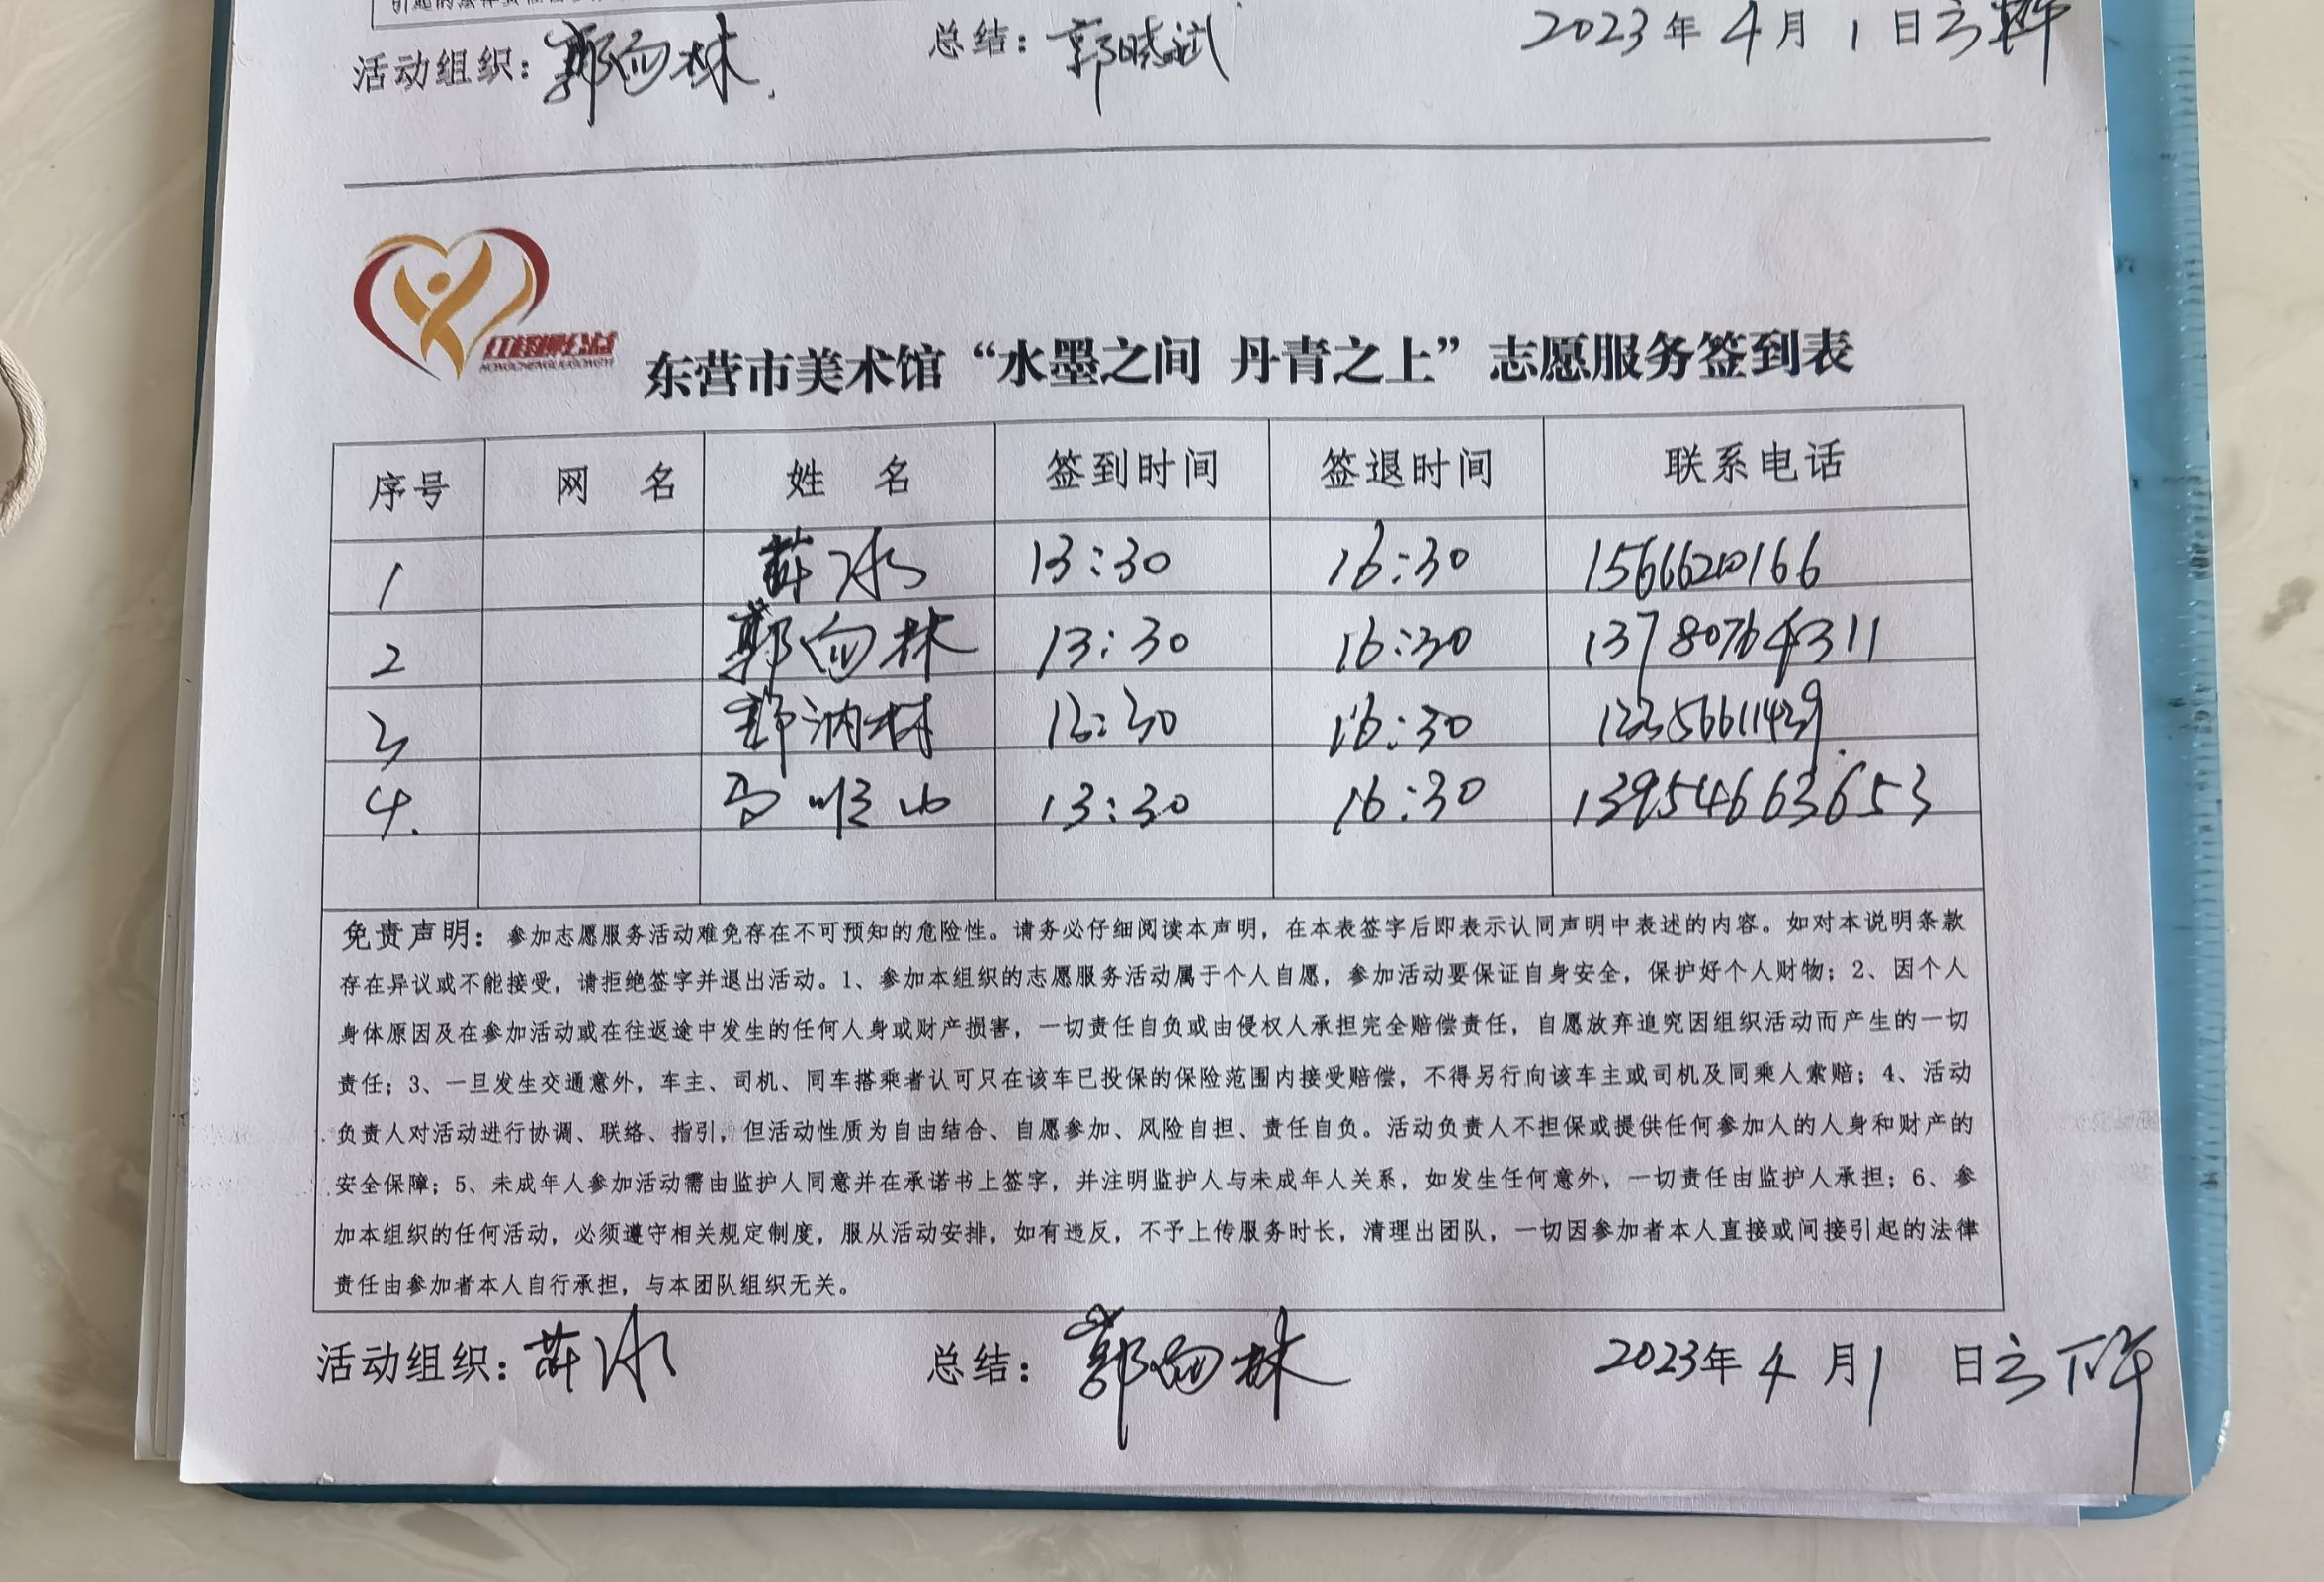 活动组织：郭向林 总结：郭晓斌 2023年4月1日
东营市美术馆“水墨之间 丹青之上”志愿服务签到表
序号 网 名 姓 名 签到时间 签退时间 联系电话
1 薛冰 13:30 16:30 15666210166
2 郭向林 13:30 16:30 13780764311
3 13:30 16:30
4. 13:30 16:30 13954663653
免责声明：参加志愿服务活动难免存在不可预知的危险性。请务必仔细阅读本声明，在本表签字后即表示认同声明中表述的内容。如对本说明条款
存在异议或不能接受，请拒绝签字并退出活动。1、参加本组织的志愿服务活动属于个人自愿，参加活动要保证自身安全，保护好个人财物；2、因个人
身体原因及在参加活动或在往返途中发生的任何人身或财产损害，一切责任自负或由侵权人承担完全赔偿责任，自愿放弃追究因组织活动而产生的一切
责任；3、一旦发生交通意外，车主、司机、同车搭乘者认可只在该车已投保的保险范围内接受赔偿，不得另行向该车主或司机及同乘人索赔；4、活动
负责人对活动进行协调、联络、指引，但活动性质为自由结合、自愿参加、风险自担、责任自负。活动负责人不担保或提供任何参加人的人身和财产的
安全保障；5、未成年人参加活动需由监护人同意并在承诺书上签字，并注明监护人与未成年人关系，如发生任何意外，一切责任由监护人承担；6、参
加本组织的任何活动，必须遵守相关规定制度，服从活动安排，如有违反，不予上传服务时长，清理出团队，一切因参加者本人直接或间接引起的法律
责任由参加者本人自行承担，与本团队组织无关。
活动组织：薛冰 总结：郭向林 2023年4月1 日 下午